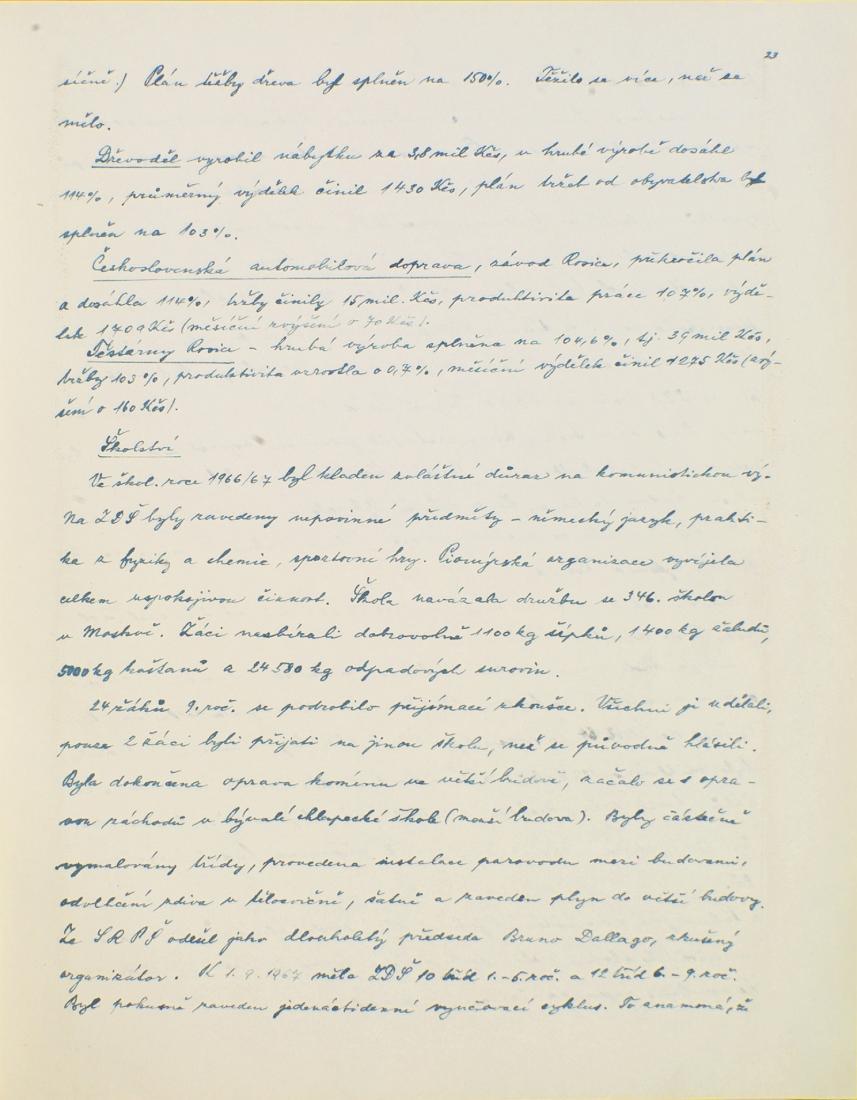 23
síčně.) Plán těžby dřeva byl splněn na 150%. Těžilo se více, než se
mělo.
Dřevoděl vyrobil nábytku za 3,8 mil Kčs, v hrubé výrobě dosáhl
114%, průměrný výdělek činil 1430 Kčs, plán tržeb od obyvatelstva byl
splněn na 103%.
Československá automobilová doprava, závod Rosice, překročila plán
a dosáhla 114%, tržby činily 15 mil. Kčs, produktivita práce 107%, výdě-
lek 1409 Kčs (měsíční zvýšení o 70 Kčs).
Těstárny Rosice - hrubá výroba splněna na 104,6%, tj. 39 mil Kčs,
tržby 103%, produktivita vzrostla o 0,7%, měsíční výdělek činil 1275 Kčs (zvý-
šení o 160 Kčs).
Školství
Ve škol. roce 1966/67 byl kladen zvláštní důraz na komunistickou vý-
Na ZDŠ byly zavedeny nepovinné předměty - německý jazyk, prakti-
ka z fyziky a chemie, sportovní hry. Pionýrská organizace vyvíjela
celkem uspokojivou činnost. Škola navázala družbu se 346. školou
v Moskvě. Žáci nasbírali dobrovolně 1100 kg šípků, 1400 kg žaludů,
5000 kg kaštanů a 24 580 kg odpadových surovin.
24 žáků 9. roč. se podrobilo přijímací zkoušce. Všichni ji udělali,
pouze 2 žáci byli přijati na jinou školu, než se původně hlásili.
Byla dokončena oprava komínu ve větší budově, začalo se s opra-
vou záchodů v bývalé chlapecké škole (menší budova). Byly částečně
vymalovány třídy, provedena instalace parovodu mezi budovami,
odvlhčení zdiva v tělocvičně, šatně a zaveden plyn do větší budovy.
Ze SRPŠ odešel jako dlouholetý předseda Bruno Dallago, zkušený
organizátor. K 1.9.1967 měla ZDŠ 10 tříd 1.-5. roč. a 12 tříd 6.-9. roč.
Byl pokusně zaveden jedenáctidenní vyučovací cyklus. To znamená, že